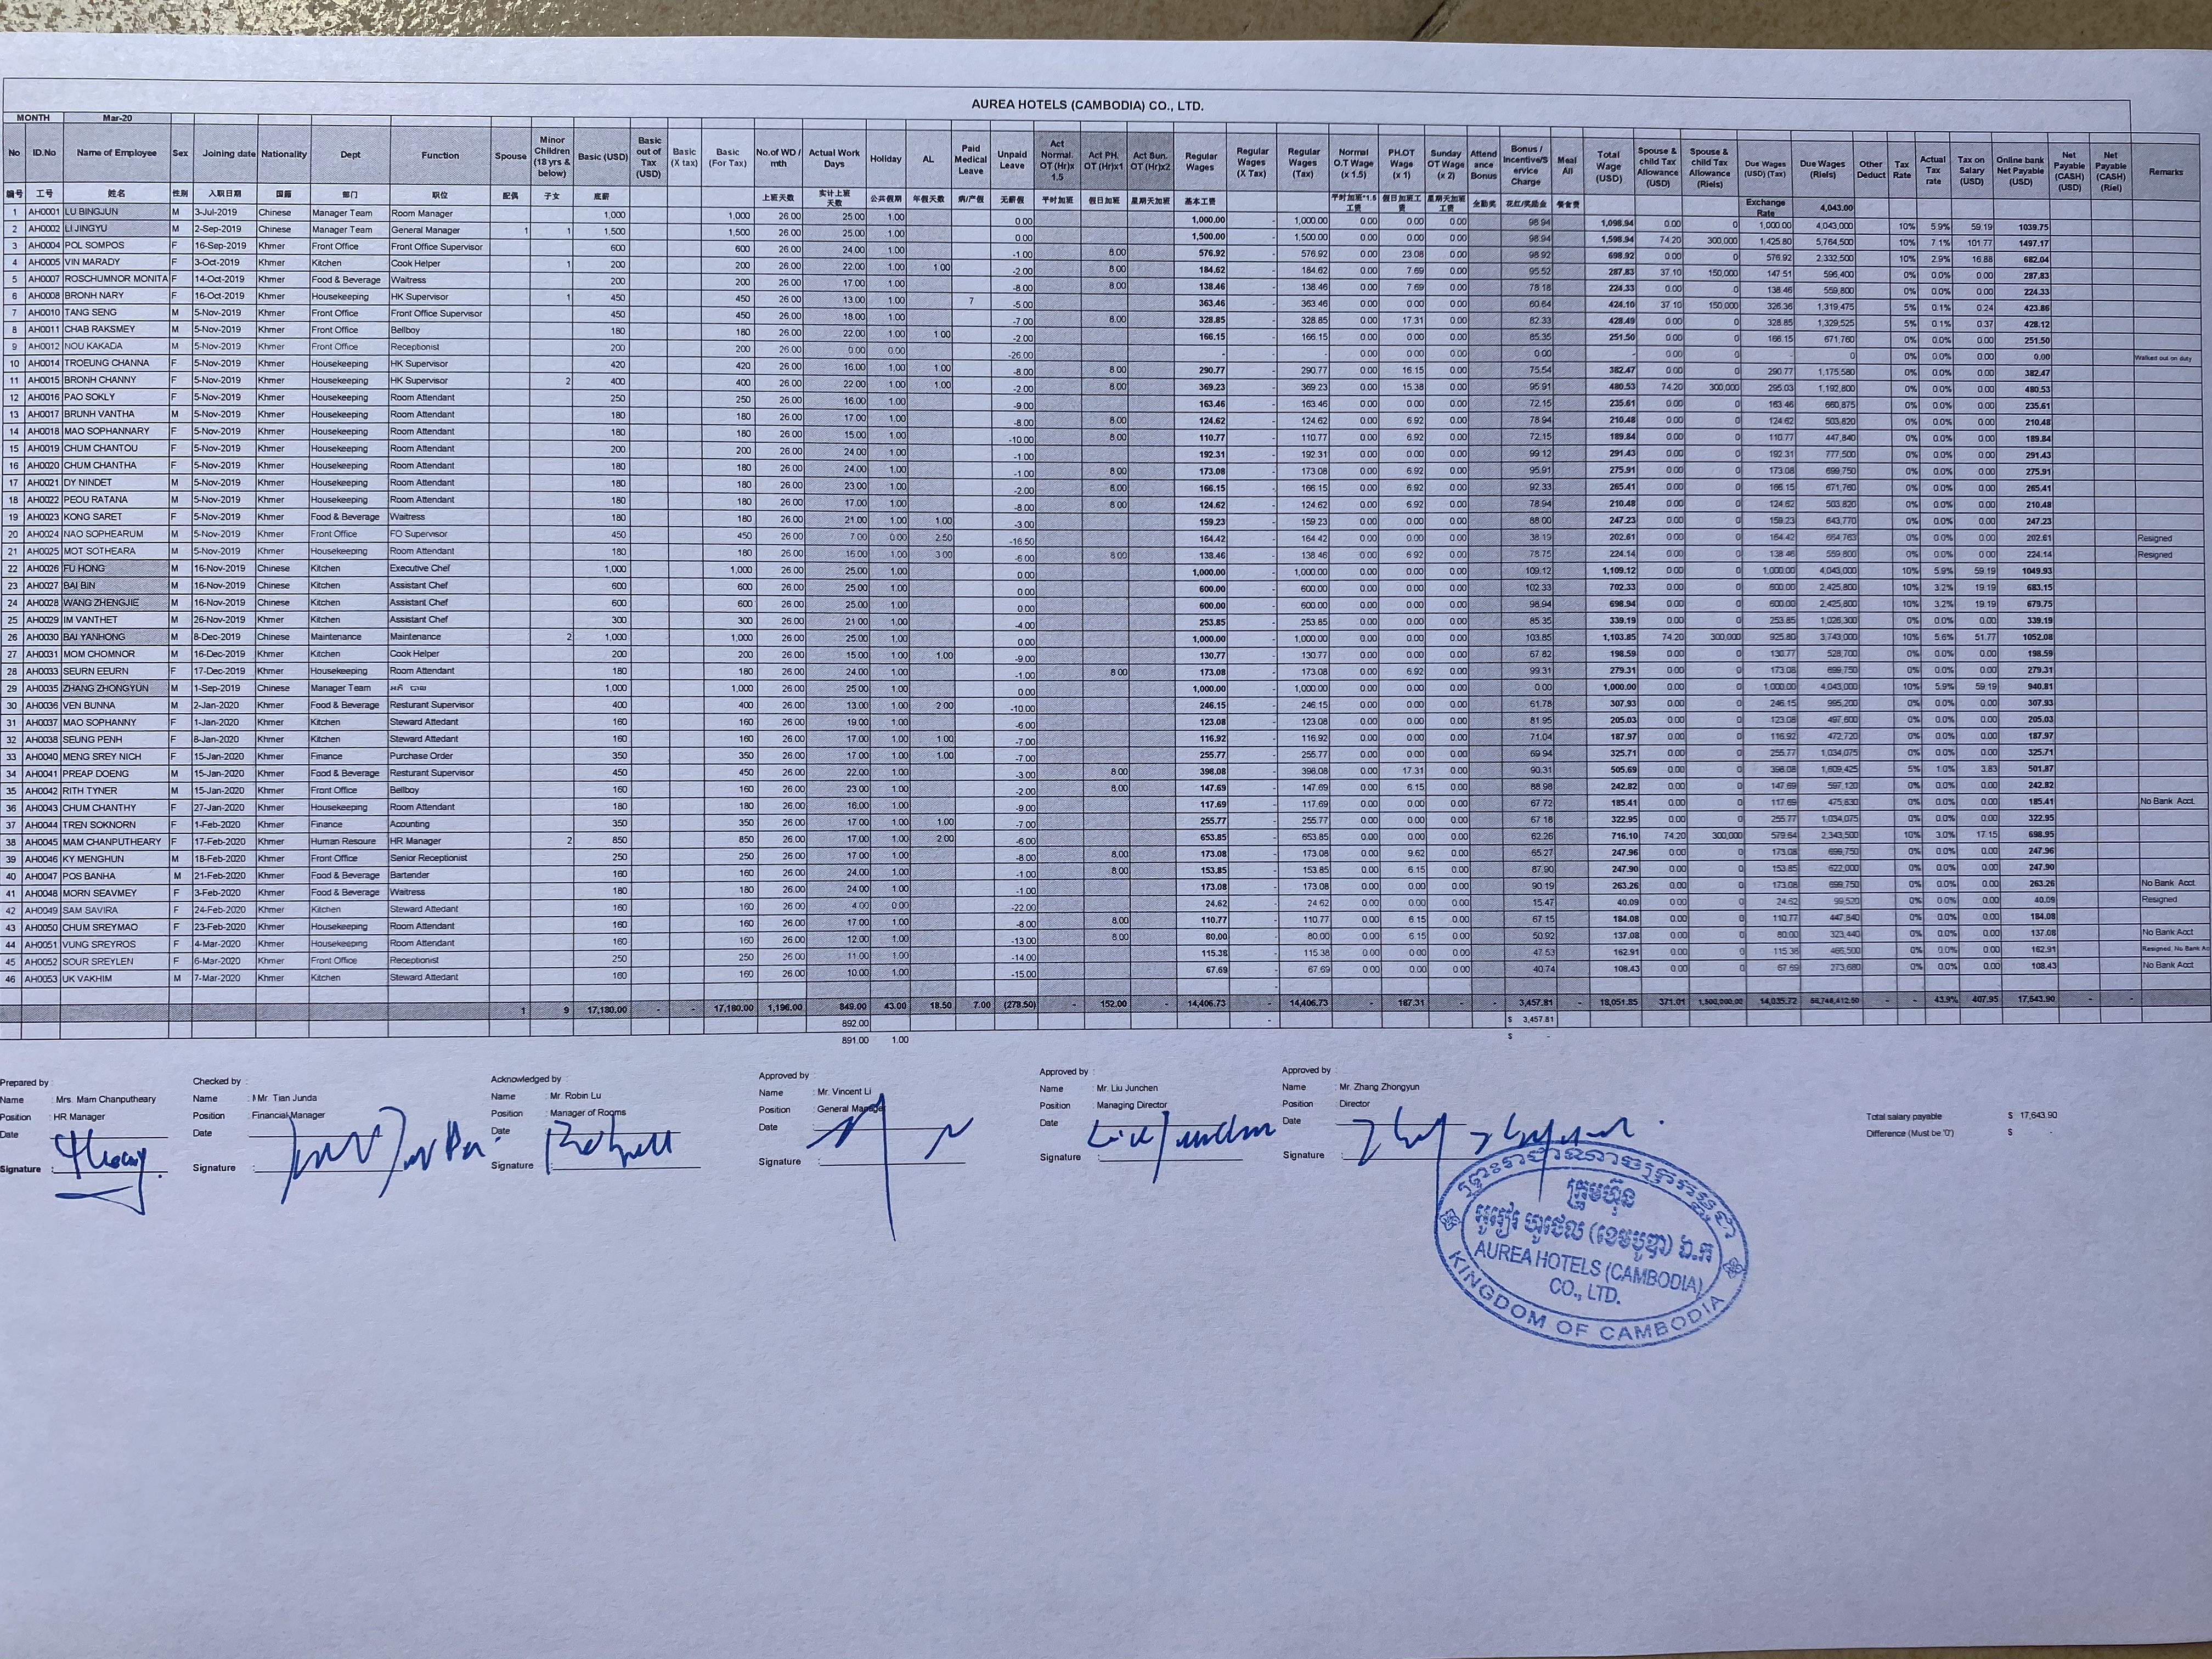 AUREA HOTELS (CAMBODIA) CO., LTD.
MONTH Mar-20
No ID.No Name of Employee Sex Joining date Nationality Dept Function Spouse Minor Children (18 yrs & below) Basic (USD) Basic out of Tax (USD) Basic (X tax) Basic (For Tax) No.of WD / mth Actual Work Days Holiday AL Paid Medical Leave Unpaid Leave Act Normal. OT (Hr)x 1.5 Act PH. OT (Hr)x1 Act Sun. OT (Hr)x2 Regular Wages Regular Wages (X Tax) Regular Wages (Tax) Normal O.T Wage (x 1.5) PH.OT Wage (x 1) Sunday OT Wage (x 2) Attend ance Bonus Bonus / Incentive/S ervice Charge Meal All Total Wage (USD) Spouse & child Tax Allowance (USD) Spouse & child Tax Allowance (Riels) Due Wages (USD) (Tax) Due Wages (Riels) Other Deduct Tax Rate Actual Tax rate Tax on Salary (USD) Online bank Net Payable (USD) Net Payable (CASH) (USD) Net Payable (CASH) (Riel) Remarks
编号 工号 姓名 性别 入职日期 国籍 部门 职位 配偶 子女 底薪 上班天数 实计上班天数 公共假期 年假天数 病/产假 无薪假 平时加班 假日加班 星期天加班 基本工资 平时加班*1.5工资 假日加班工资 星期天加班工资 全勤奖 花红/奖励金 餐食费
Exchange Rate 4,043.00
1 AH0001 LU BINGJUN M 3-Jul-2019 Chinese Manager Team Room Manager 1,000 1,000 26.00 25.00 1.00 0.00 1,000.00 - 1,000.00 0.00 0.00 0.00 98.94 1,098.94 0.00 0 1,000.00 4,043,000 10% 5.9% 59.19 1039.75
2 AH0002 LI JINGYU M 2-Sep-2019 Chinese Manager Team General Manager 1 1 1,500 1,500 26.00 25.00 1.00 0.00 1,500.00 - 1,500.00 0.00 0.00 0.00 98.94 1,598.94 74.20 300,000 1,425.80 5,764,500 10% 7.1% 101.77 1497.17
3 AH0004 POL SOMPOS F 16-Sep-2019 Khmer Front Office Front Office Supervisor 600 600 26.00 24.00 1.00 -1.00 8.00 576.92 - 576.92 0.00 23.08 0.00 98.92 698.92 0.00 0 576.92 2,332,500 10% 2.9% 16.88 682.04
4 AH0005 VIN MARADY F 3-Oct-2019 Khmer Kitchen Cook Helper 1 200 200 26.00 22.00 1.00 1.00 -2.00 8.00 184.62 - 184.62 0.00 7.69 0.00 95.52 287.83 37.10 150,000 147.51 596,400 0% 0.0% 0.00 287.83
5 AH0007 ROSCHUMNOR MONITA F 14-Oct-2019 Khmer Food & Beverage Waitress 200 200 26.00 17.00 1.00 -8.00 8.00 138.46 - 138.46 0.00 7.69 0.00 78.18 224.33 0.00 0 138.46 559,800 0% 0.0% 0.00 224.33
6 AH0008 BRONH NARY F 16-Oct-2019 Khmer Housekeeping HK Supervisor 1 450 450 26.00 13.00 1.00 7 -5.00 363.46 - 363.46 0.00 0.00 0.00 60.64 424.10 37.10 150,000 326.36 1,319,475 5% 0.1% 0.24 423.86
7 AH0010 TANG SENG M 5-Nov-2019 Khmer Front Office Front Office Supervisor 450 450 26.00 18.00 1.00 -7.00 8.00 328.85 - 328.85 0.00 17.31 0.00 82.33 428.49 0.00 0 328.85 1,329,525 5% 0.1% 0.37 428.12
8 AH0011 CHAB RAKSMEY M 5-Nov-2019 Khmer Front Office Bellboy 180 180 26.00 22.00 1.00 1.00 -2.00 166.15 - 166.15 0.00 0.00 0.00 85.35 251.50 0.00 0 166.15 671,760 0% 0.0% 0.00 251.50
9 AH0012 NOU KAKADA M 5-Nov-2019 Khmer Front Office Receptionist 200 200 26.00 0.00 0.00 -26.00 - - - 0.00 0.00 0.00 0.00 - 0.00 0 - 0 0% 0.0% 0.00 0.00 Walked out on duty
10 AH0014 TROEUNG CHANNA F 5-Nov-2019 Khmer Housekeeping HK Supervisor 420 420 26.00 16.00 1.00 1.00 -8.00 8.00 290.77 - 290.77 0.00 16.15 0.00 75.54 382.47 0.00 0 290.77 1,175,580 0% 0.0% 0.00 382.47
11 AH0015 BRONH CHANNY F 5-Nov-2019 Khmer Housekeeping HK Supervisor 2 400 400 26.00 22.00 1.00 1.00 -2.00 8.00 369.23 - 369.23 0.00 15.38 0.00 95.91 480.53 74.20 300,000 295.03 1,192,800 0% 0.0% 0.00 480.53
12 AH0016 PAO SOKLY F 5-Nov-2019 Khmer Housekeeping Room Attendant 250 250 26.00 16.00 1.00 -9.00 163.46 - 163.46 0.00 0.00 0.00 72.15 235.61 0.00 0 163.46 660,875 0% 0.0% 0.00 235.61
13 AH0017 BRUNH VANTHA M 5-Nov-2019 Khmer Housekeeping Room Attendant 180 180 26.00 17.00 1.00 -8.00 8.00 124.62 - 124.62 0.00 6.92 0.00 78.94 210.48 0.00 0 124.62 503,820 0% 0.0% 0.00 210.48
14 AH0018 MAO SOPHANNARY F 5-Nov-2019 Khmer Housekeeping Room Attendant 180 180 26.00 15.00 1.00 -10.00 8.00 110.77 - 110.77 0.00 6.92 0.00 72.15 189.84 0.00 0 110.77 447,840 0% 0.0% 0.00 189.84
15 AH0019 CHUM CHANTOU F 5-Nov-2019 Khmer Housekeeping Room Attendant 200 200 26.00 24.00 1.00 -1.00 192.31 - 192.31 0.00 0.00 0.00 99.12 291.43 0.00 0 192.31 777,500 0% 0.0% 0.00 291.43
16 AH0020 CHUM CHANTHA F 5-Nov-2019 Khmer Housekeeping Room Attendant 180 180 26.00 24.00 1.00 -1.00 8.00 173.08 - 173.08 0.00 6.92 0.00 95.91 275.91 0.00 0 173.08 699,750 0% 0.0% 0.00 275.91
17 AH0021 DY NINDET M 5-Nov-2019 Khmer Housekeeping Room Attendant 180 180 26.00 23.00 1.00 -2.00 8.00 166.15 - 166.15 0.00 6.92 0.00 92.33 265.41 0.00 0 166.15 671,760 0% 0.0% 0.00 265.41
18 AH0022 PEOU RATANA M 5-Nov-2019 Khmer Housekeeping Room Attendant 180 180 26.00 17.00 1.00 -8.00 8.00 124.62 - 124.62 0.00 6.92 0.00 78.94 210.48 0.00 0 124.62 503,820 0% 0.0% 0.00 210.48
19 AH0023 KONG SARET F 5-Nov-2019 Khmer Food & Beverage Waitress 180 180 26.00 21.00 1.00 1.00 -3.00 159.23 - 159.23 0.00 0.00 0.00 88.00 247.23 0.00 0 159.23 643,770 0% 0.0% 0.00 247.23
20 AH0024 NAO SOPHEARUM M 5-Nov-2019 Khmer Front Office FO Supervisor 450 450 26.00 7.00 0.00 2.50 -16.50 164.42 - 164.42 0.00 0.00 0.00 38.19 202.61 0.00 0 164.42 664,763 0% 0.0% 0.00 202.61 Resigned
21 AH0025 MOT SOTHEARA M 5-Nov-2019 Khmer Housekeeping Room Attendant 180 180 26.00 16.00 1.00 3.00 -6.00 8.00 138.46 - 138.46 0.00 6.92 0.00 78.75 224.14 0.00 0 138.46 559,800 0% 0.0% 0.00 224.14 Resigned
22 AH0026 FU HONG M 16-Nov-2019 Chinese Kitchen Executive Chef 1,000 1,000 26.00 25.00 1.00 0.00 1,000.00 - 1,000.00 0.00 0.00 0.00 109.12 1,109.12 0.00 0 1,000.00 4,043,000 10% 5.9% 59.19 1049.93
23 AH0027 BAI BIN M 16-Nov-2019 Chinese Kitchen Assistant Chef 600 600 26.00 25.00 1.00 0.00 600.00 - 600.00 0.00 0.00 0.00 102.33 702.33 0.00 0 600.00 2,425,800 10% 3.2% 19.19 683.15
24 AH0028 WANG ZHENGJIE M 16-Nov-2019 Chinese Kitchen Assistant Chef 600 600 26.00 25.00 1.00 0.00 600.00 - 600.00 0.00 0.00 0.00 98.94 698.94 0.00 0 600.00 2,425,800 10% 3.2% 19.19 679.75
25 AH0029 IM VANTHET M 26-Nov-2019 Khmer Kitchen Assistant Chef 300 300 26.00 21.00 1.00 -4.00 253.85 - 253.85 0.00 0.00 0.00 85.35 339.19 0.00 0 253.85 1,026,300 0% 0.0% 0.00 339.19
26 AH0030 BAI YANHONG M 8-Dec-2019 Chinese Maintenance Maintenance 2 1,000 1,000 26.00 25.00 1.00 0.00 1,000.00 - 1,000.00 0.00 0.00 0.00 103.85 1,103.85 74.20 300,000 925.80 3,743,000 10% 5.6% 51.77 1052.08
27 AH0031 MOM CHOMNOR M 16-Dec-2019 Khmer Kitchen Cook Helper 200 200 26.00 15.00 1.00 1.00 -9.00 130.77 - 130.77 0.00 0.00 0.00 67.82 198.59 0.00 0 130.77 528,700 0% 0.0% 0.00 198.59
28 AH0033 SEURN EEURN F 17-Dec-2019 Khmer Housekeeping Room Attendant 180 180 26.00 24.00 1.00 -1.00 8.00 173.08 - 173.08 0.00 6.92 0.00 99.31 279.31 0.00 0 173.08 699,750 0% 0.0% 0.00 279.31
29 AH0035 ZHANG ZHONGYUN M 1-Sep-2019 Chinese Manager Team 1,000 1,000 26.00 25.00 1.00 0.00 1,000.00 - 1,000.00 0.00 0.00 0.00 0.00 1,000.00 0.00 0 1,000.00 4,043,000 10% 5.9% 59.19 940.81
30 AH0036 VEN BUNNA M 2-Jan-2020 Khmer Food & Beverage Resturant Supervisor 400 400 26.00 13.00 1.00 2.00 -10.00 246.15 - 246.15 0.00 0.00 0.00 61.78 307.93 0.00 0 246.15 995,200 0% 0.0% 0.00 307.93
31 AH0037 MAO SOPHANNY F 1-Jan-2020 Khmer Kitchen Steward Attedant 160 160 26.00 19.00 1.00 -6.00 123.08 - 123.08 0.00 0.00 0.00 81.95 205.03 0.00 0 123.08 497,600 0% 0.0% 0.00 205.03
32 AH0038 SEUNG PENH F 8-Jan-2020 Khmer Kitchen Steward Attedant 160 160 26.00 17.00 1.00 1.00 -7.00 116.92 - 116.92 0.00 0.00 0.00 71.04 187.97 0.00 0 116.92 472,720 0% 0.0% 0.00 187.97
33 AH0040 MENG SREY NICH F 15-Jan-2020 Khmer Finance Purchase Order 350 350 26.00 17.00 1.00 1.00 -7.00 255.77 - 255.77 0.00 0.00 0.00 69.94 325.71 0.00 0 255.77 1,034,075 0% 0.0% 0.00 325.71
34 AH0041 PREAP DOENG M 15-Jan-2020 Khmer Food & Beverage Resturant Supervisor 450 450 26.00 22.00 1.00 -3.00 8.00 398.08 - 398.08 0.00 17.31 0.00 90.31 505.69 0.00 0 398.08 1,609,425 5% 1.0% 3.83 501.87
35 AH0042 RITH TYNER M 15-Jan-2020 Khmer Front Office Bellboy 160 160 26.00 23.00 1.00 -2.00 8.00 147.69 - 147.69 0.00 6.15 0.00 88.98 242.82 0.00 0 147.69 597,120 0% 0.0% 0.00 242.82
36 AH0043 CHUM CHANTHY F 27-Jan-2020 Khmer Housekeeping Room Attendant 180 180 26.00 16.00 1.00 -9.00 117.69 - 117.69 0.00 0.00 0.00 67.72 185.41 0.00 0 117.69 475,830 0% 0.0% 0.00 185.41 No Bank Acct.
37 AH0044 TREN SOKNORN F 1-Feb-2020 Khmer Finance Acounting 350 350 26.00 17.00 1.00 1.00 -7.00 255.77 - 255.77 0.00 0.00 0.00 67.18 322.95 0.00 0 255.77 1,034,075 0% 0.0% 0.00 322.95
38 AH0045 MAM CHANPUTHEARY F 17-Feb-2020 Khmer Human Resoure HR Manager 2 850 850 26.00 17.00 1.00 2.00 -6.00 653.85 - 653.85 0.00 0.00 0.00 62.26 716.10 74.20 300,000 579.64 2,343,500 10% 3.0% 17.15 698.95
39 AH0046 KY MENGHUN M 18-Feb-2020 Khmer Front Office Senior Receptionist 250 250 26.00 17.00 1.00 -8.00 8.00 173.08 - 173.08 0.00 9.62 0.00 65.27 247.96 0.00 0 173.08 699,750 0% 0.0% 0.00 247.96
40 AH0047 POS BANHA M 21-Feb-2020 Khmer Food & Beverage Bartender 160 160 26.00 24.00 1.00 -1.00 8.00 153.85 - 153.85 0.00 6.15 0.00 87.90 247.90 0.00 0 153.85 622,000 0% 0.0% 0.00 247.90
41 AH0048 MORN SEAVMEY F 3-Feb-2020 Khmer Food & Beverage Waitress 180 180 26.00 24.00 1.00 -1.00 173.08 - 173.08 0.00 0.00 0.00 90.19 263.26 0.00 0 173.08 699,750 0% 0.0% 0.00 263.26 No Bank Acct
42 AH0049 SAM SAVIRA F 24-Feb-2020 Khmer Kitchen Steward Attedant 160 160 26.00 4.00 0.00 -22.00 24.62 - 24.62 0.00 0.00 0.00 15.47 40.09 0.00 0 24.62 99,520 0% 0.0% 0.00 40.09 Resigned
43 AH0050 CHUM SREYMAO F 23-Feb-2020 Khmer Housekeeping Room Attendant 160 160 26.00 17.00 1.00 -8.00 8.00 110.77 - 110.77 0.00 6.15 0.00 67.15 184.08 0.00 0 110.77 447,840 0% 0.0% 0.00 184.08
44 AH0051 VUNG SREYROS F 4-Mar-2020 Khmer Housekeeping Room Attendant 160 160 26.00 12.00 1.00 -13.00 8.00 80.00 - 80.00 0.00 6.15 0.00 50.92 137.08 0.00 0 80.00 323,440 0% 0.0% 0.00 137.08 No Bank Acct
45 AH0052 SOUR SREYLEN F 6-Mar-2020 Khmer Front Office Receptionist 250 250 26.00 11.00 1.00 -14.00 115.38 - 115.38 0.00 0.00 0.00 47.53 162.91 0.00 0 115.38 466,500 0% 0.0% 0.00 162.91 Resigned, No Bank Ac
46 AH0053 UK VAKHIM M 7-Mar-2020 Khmer Kitchen Steward Attedant 160 160 26.00 10.00 1.00 -15.00 67.69 - 67.69 0.00 0.00 0.00 40.74 108.43 0.00 0 67.69 273,680 0% 0.0% 0.00 108.43 No Bank Acct
1 9 17,180.00 - - 17,180.00 1,196.00 849.00 43.00 18.50 7.00 (278.50) - 152.00 - 14,406.73 - 14,406.73 - 187.31 - - 3,457.81 - 18,051.85 371.01 1,500,000.00 14,035.72 56,746,412.50 - - 43.9% 407.95 17,643.90 - -
892.00 - $ 3,457.81
891.00 1.00 $ -
Prepared by : Checked by : Acknowledged by : Approved by : Approved by : Approved by :
Name : Mrs. Mam Chanputheary Name : Mr. Tian Junda Name : Mr. Robin Lu Name : Mr. Vincent Li Name : Mr. Liu Junchen Name : Mr. Zhang Zhongyun
Position : HR Manager Position : Financial Manager Position : Manager of Rooms Position : General Manager Position : Managing Director Position : Director
Date Date Date Date Date Date
Signature : Signature : Signature : Signature : Signature : Signature :
Total salary payable $ 17,643.90
Difference (Must be '0') $ -
ព្រះរាជាណាចក្រកម្ពុជា
ក្រុមហ៊ុន
អូរៀ ហូថេល (ខេមបូឌា) ឯ.ក
AUREA HOTELS (CAMBODIA)
CO., LTD.
KINGDOM OF CAMBODIA